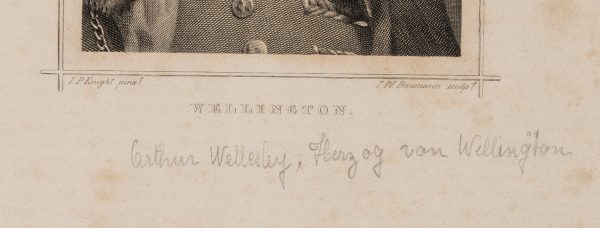 J. P. Knight pinxt.
J. W. Baumann sculpt.
WELLINGTON.
Arthur Wellesley, Herzog von Wellington